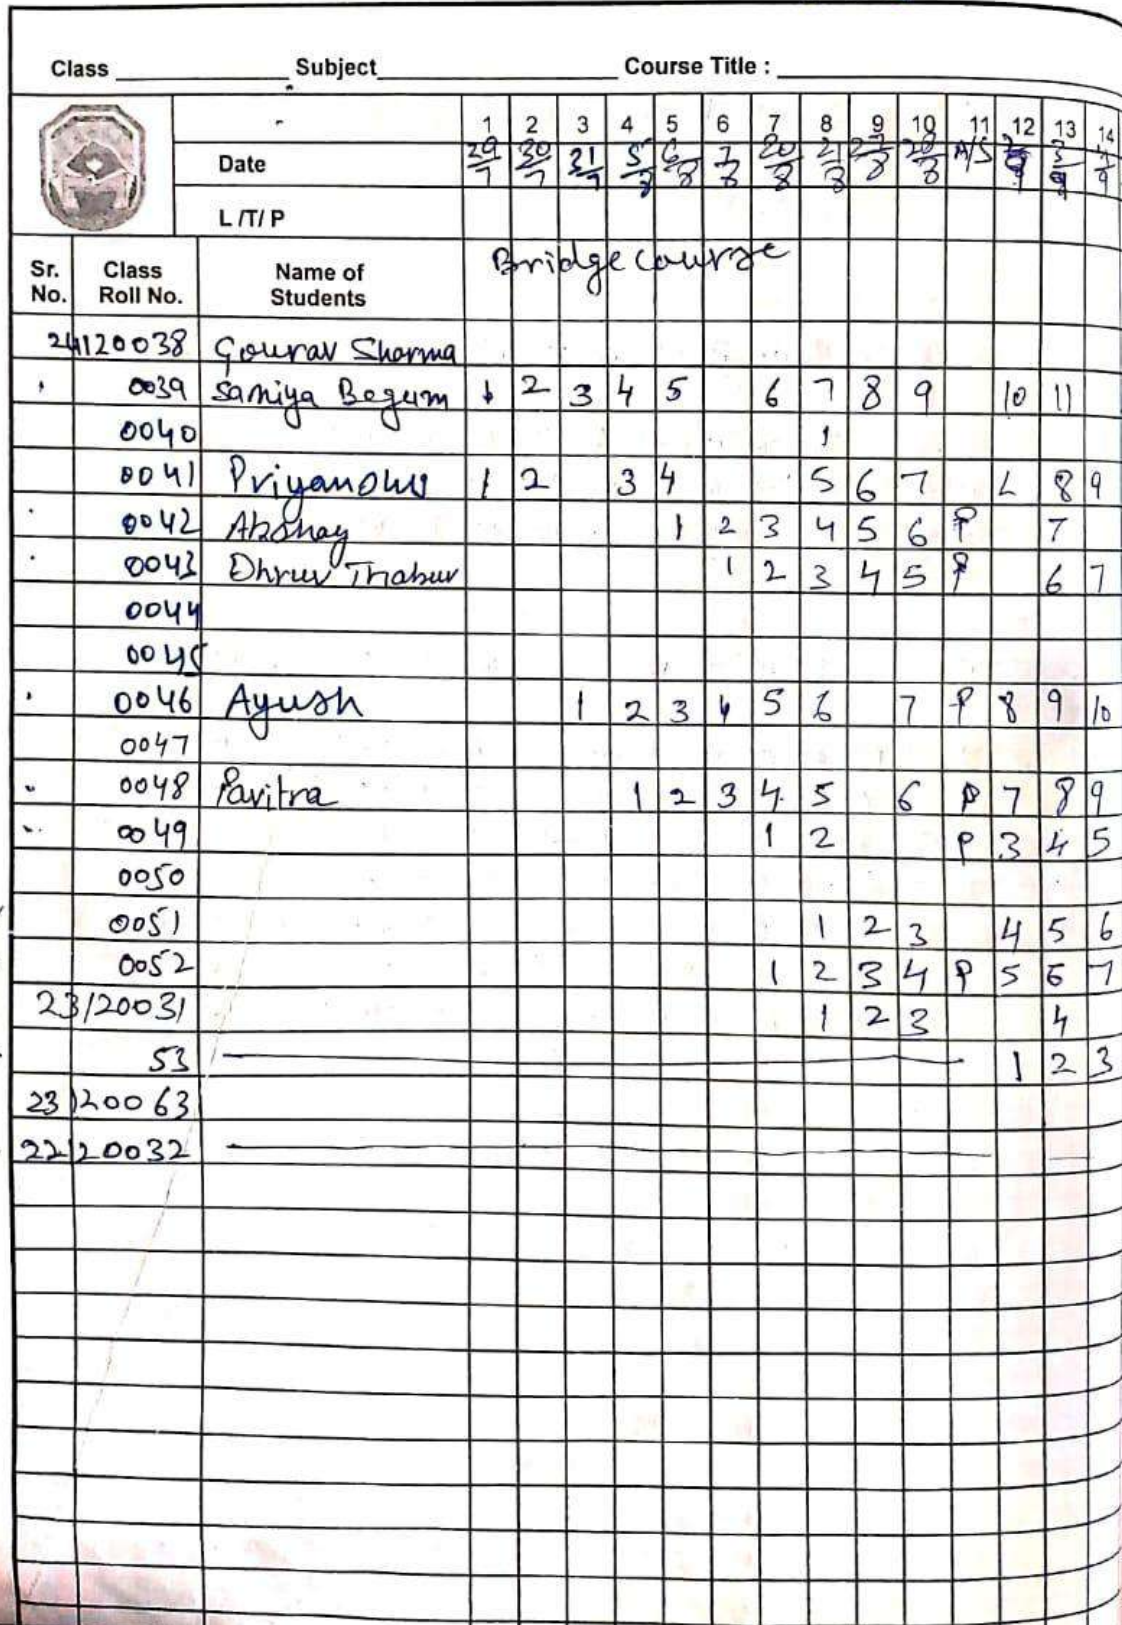 Class Subject Course Title :
1 2 3 4 5 6 7 8 9 10 11 12 13 14
Date 29/7 30/7 31/7 5/8 6/8 7/8 20/8 21/8 27/8 28/8 A/S
L /T/ P
Sr. No. Class Roll No. Name of Students Bridge course
24120038 Gourav Sharma
0039 Saniya Begum 1 2 3 4 5 6 7 8 9 10 11
0040 1
0041 Priyanshu 1 2 3 4 5 6 7 L 8 9
0042 Akshay 1 2 3 4 5 6 P 7
0043 Dhruv Thakur 1 2 3 4 5 P 6 7
0044
0045
0046 Ayush 1 2 3 4 5 6 7 P 8 9 10
0047
0048 Pavitra 1 2 3 4 5 6 P 7 8 9
0049 1 2 P 3 4 5
0050
0051 1 2 3 4 5 6
0052 1 2 3 4 P 5 6 7
23/20031 1 2 3 4
53 1 2 3
23120063
22120032